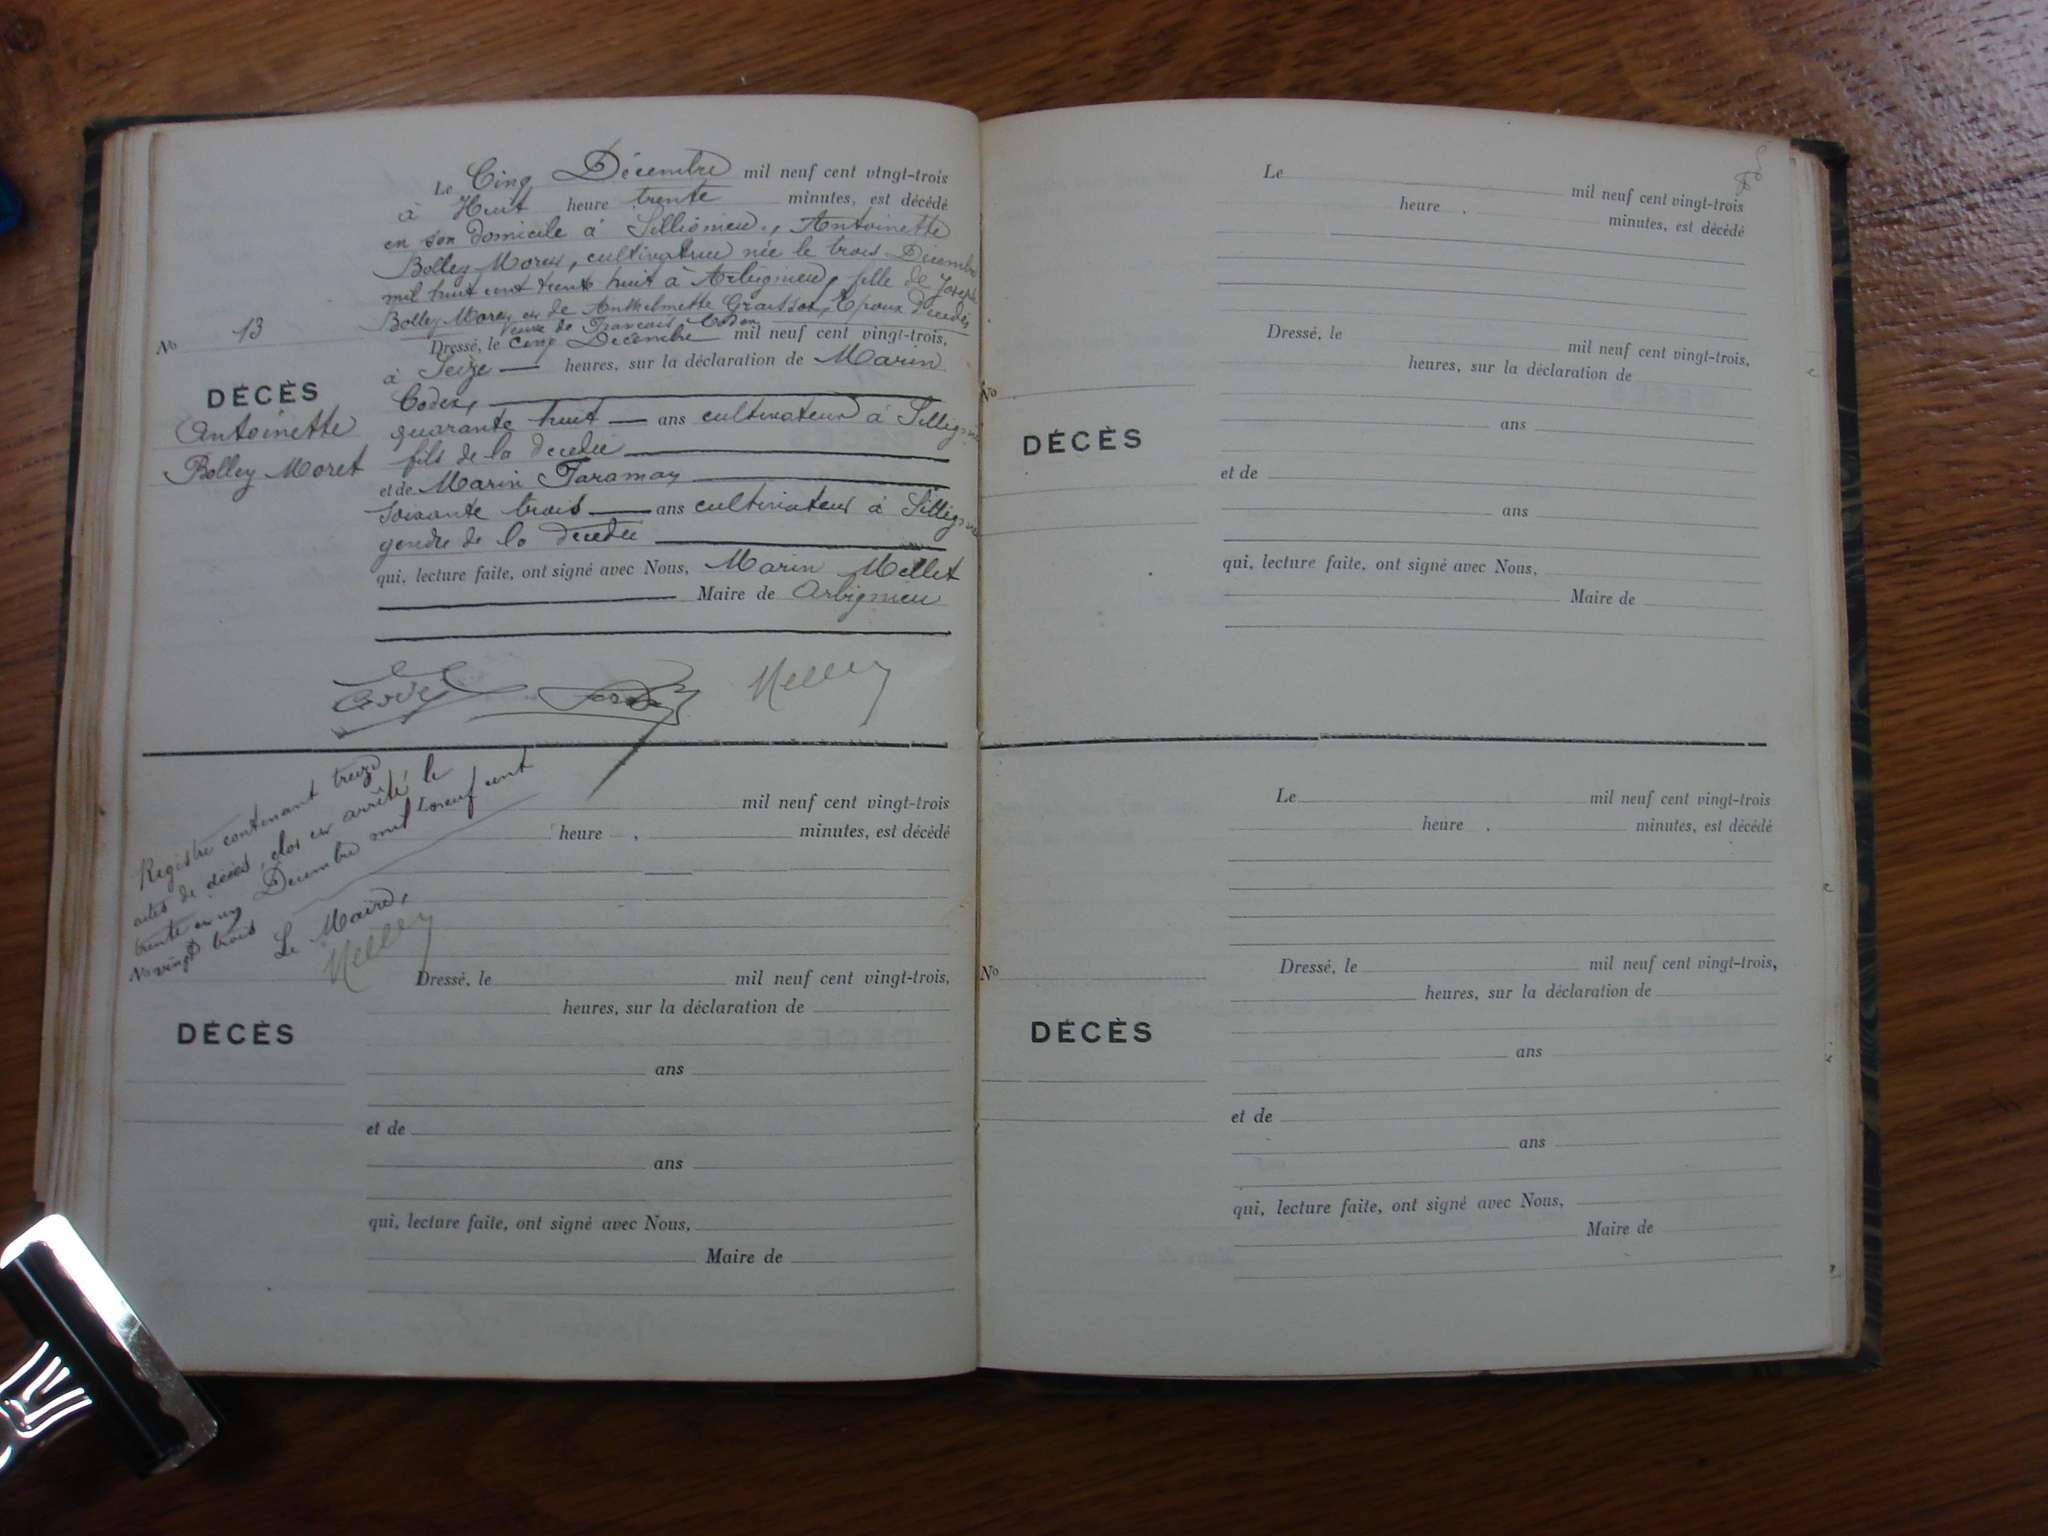 Le Cinq Décembre mil neuf cent vingt-trois
à Huit heure trente minutes, est décédé
en son domicile à Sillignieu, Antoinette
Bolley Moret, cultivatrice née le trois Décembre
mil huit cent trente huit à Arbignieu, fille de Joseph
Bolley Moret et de Anthelmette Graisson, Epoux Décédés
Veuve de François Coder
No 13
Dressé, le cinq Décembre mil neuf cent vingt-trois,
à Seize heures, sur la déclaration de Marin
DÉCÈS
Antoinette
Bolley Moret
Coder,
quarante huit ans cultivateur à Sillignieu
fils de la décédée
et de Marin Taramay
soixante trois ans cultivateur à Sillignieu
gendre de la décédée
qui, lecture faite, ont signé avec Nous, Marin Mellet
Maire de Arbignieu
Registre contenant treize
actes de décès, clos et arrêté le
trente et un Décembre mil neuf cent
vingt trois
Le Maire,
mil neuf cent vingt-trois
heure minutes, est décédé
Dressé, le mil neuf cent vingt-trois,
heures, sur la déclaration de
DÉCÈS
ans
et de
ans
qui, lecture faite, ont signé avec Nous,
Maire de
Le mil neuf cent vingt-trois
heure minutes, est décédé
Dressé, le mil neuf cent vingt-trois,
heures, sur la déclaration de
No
DÉCÈS
ans
et de
ans
qui, lecture faite, ont signé avec Nous,
Maire de
Le mil neuf cent vingt-trois
heure minutes, est décédé
No
Dressé, le mil neuf cent vingt-trois,
heures, sur la déclaration de
DÉCÈS
ans
et de
ans
qui, lecture faite, ont signé avec Nous,
Maire de